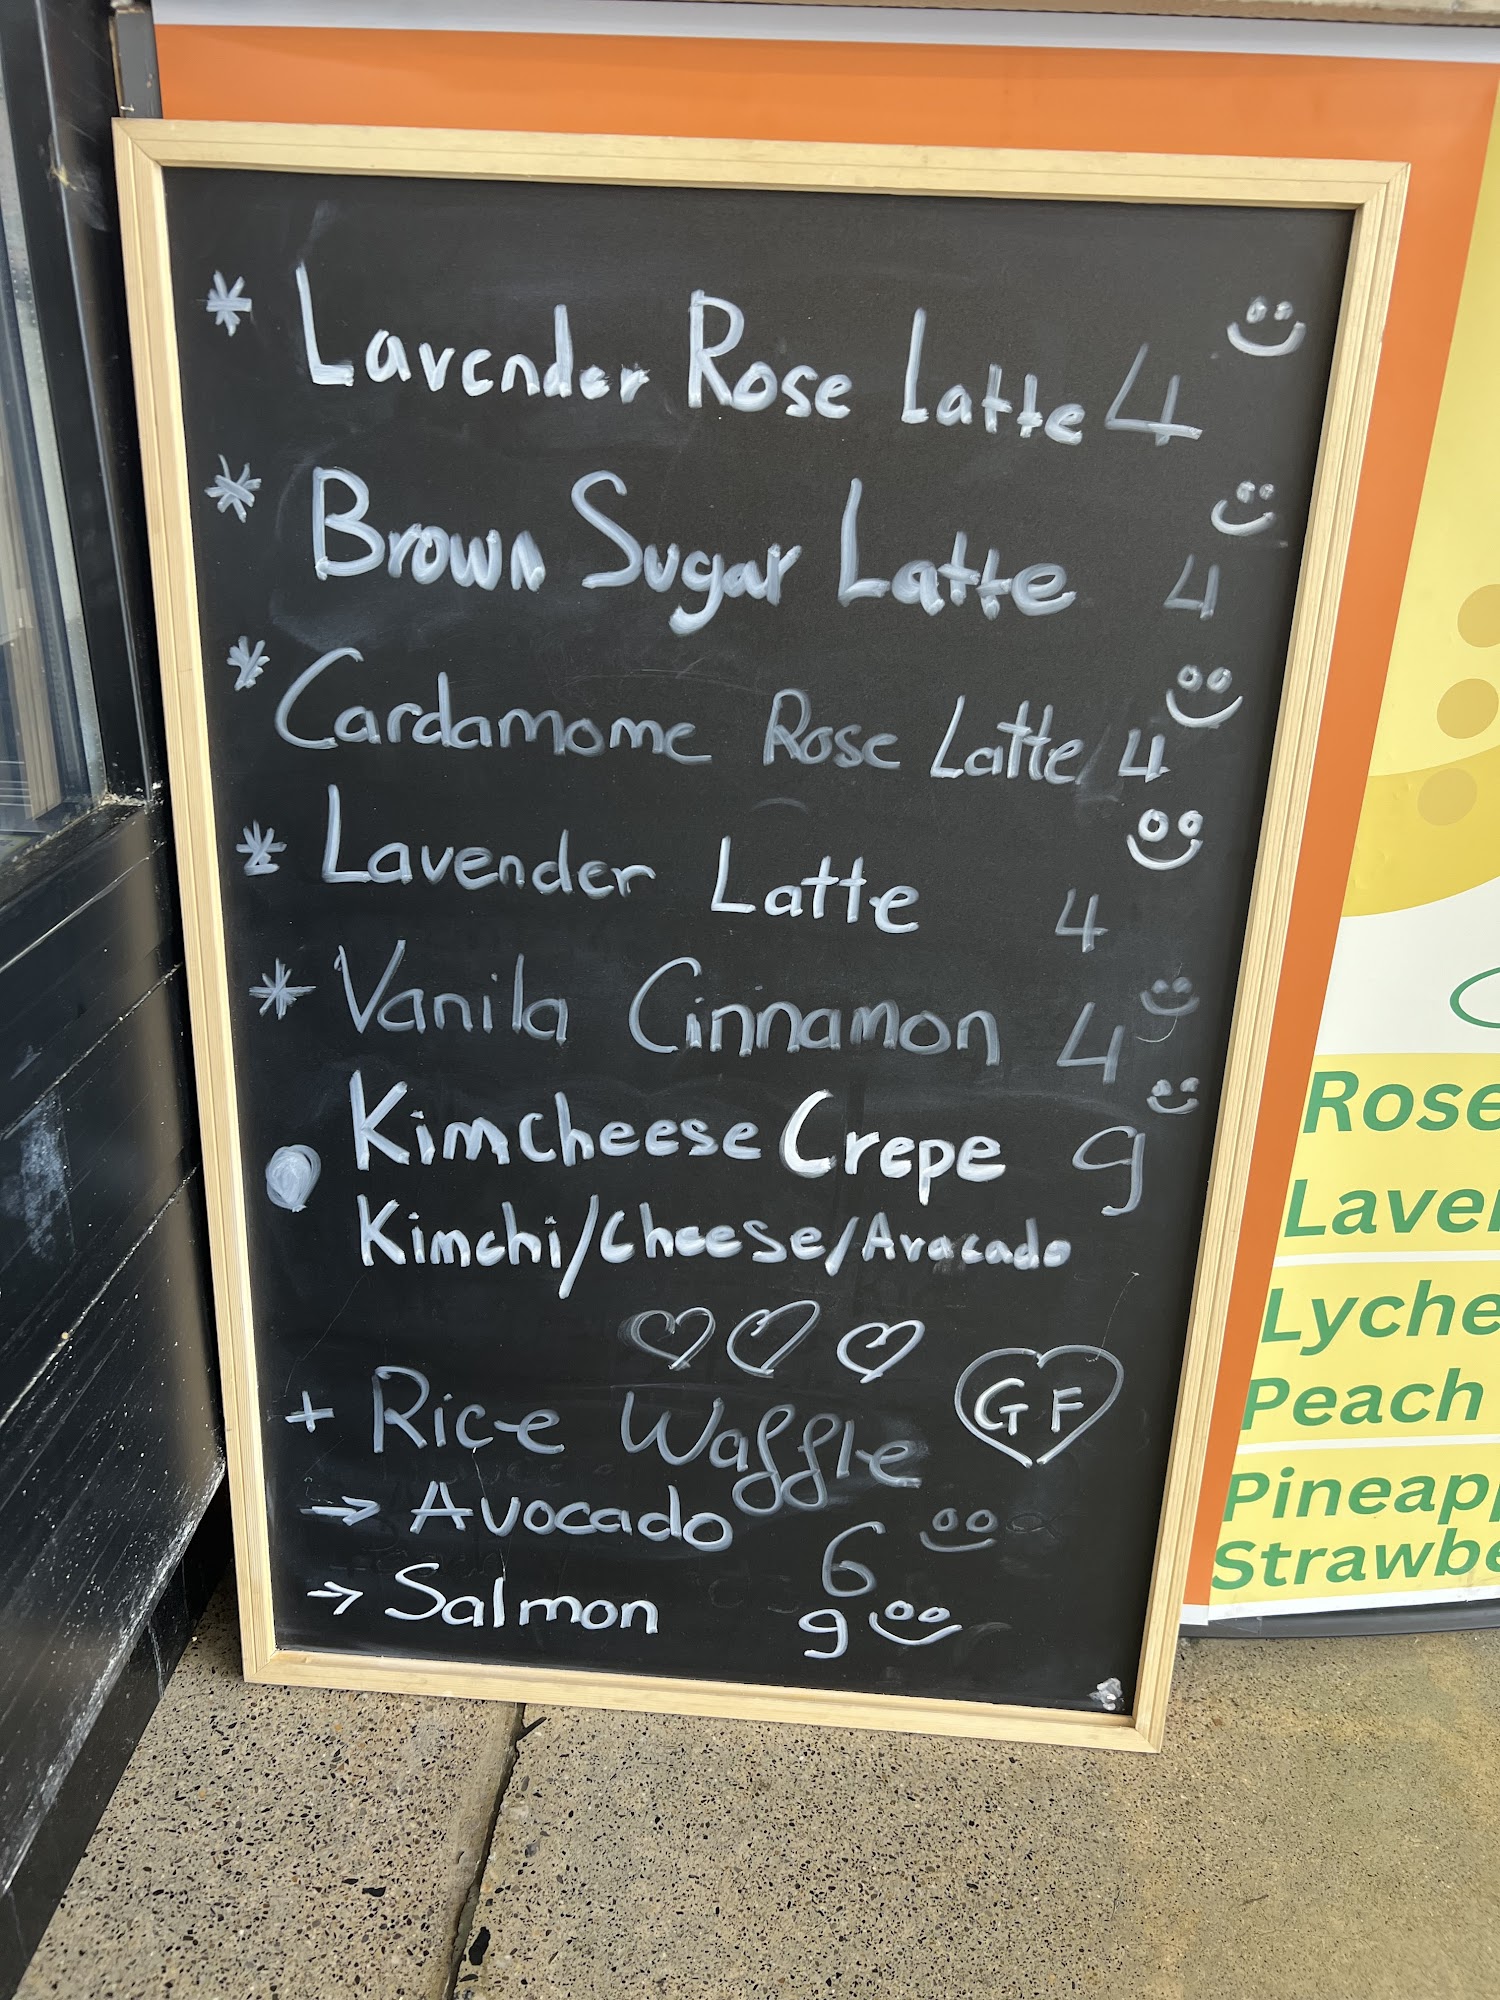 * Lavender Rose Latte 4
* Brown Sugar Latte 4
* Cardamome Rose Latte 4
* Lavender Latte 4
* Vanila Cinnamon 4
Kimcheese Crepe 9
Kimchi/Cheese/Avacado
+ Rice Waffle GF
→ Avocado 6
→ Salmon 9
Rose
Laven
Lyche
Peach
Pineapp
Strawbe